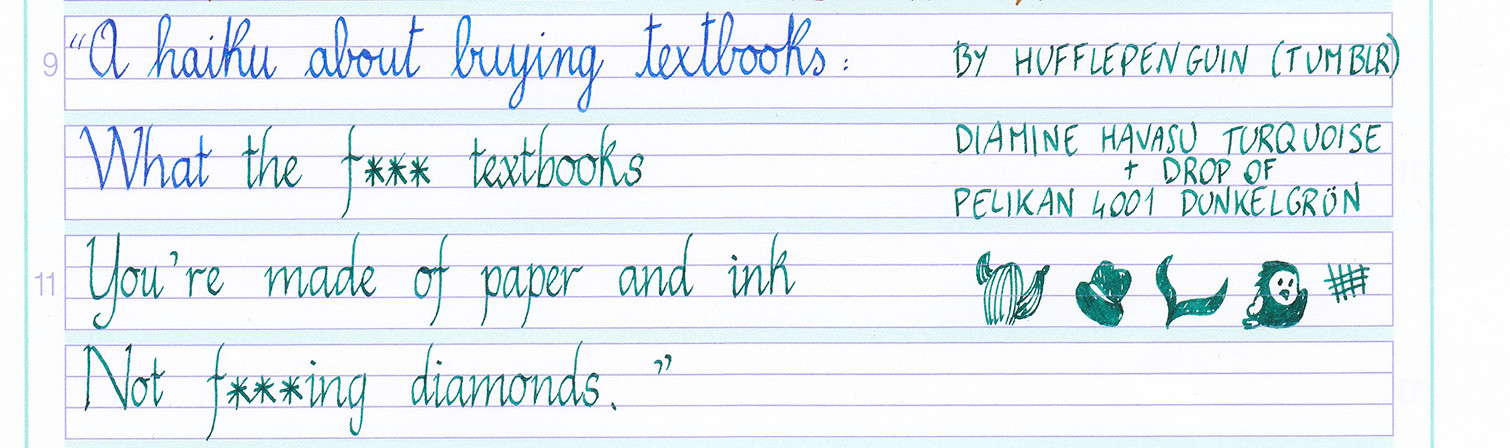 9 "A haiku about buying textbooks: BY HUFFLEPENGUIN (TUMBLR)
What the f*** textbooks DIAMINE HAVASU TURQUOISE
+ DROP OF
PELIKAN 4001 DUNKELGRÜN
11 You're made of paper and ink
Not f***ing diamonds."